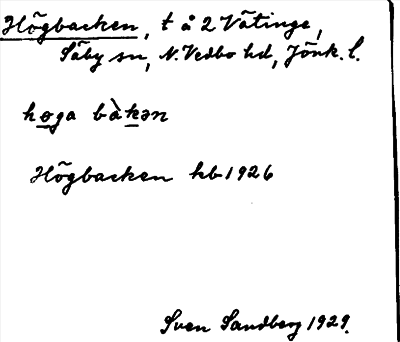 Högbacken, t å 2 Vätinge,
Säby sn, N. Vedbo hd, Jönk. l.
høga bàkən
Högbacken hb 1926
Sven Sandberg 1929.